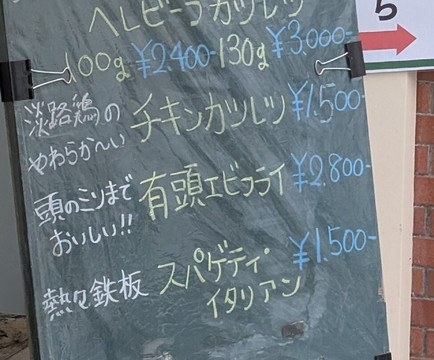 ヘレビーフカツレツ
100g ¥2400- 130g ¥3,000-
淡路鶏の
やわらか〜い
チキンカツレツ ¥1,500-
頭のミソまで
おいしい!!
有頭エビフライ ¥2,800-
熱々鉄板
スパゲティ・
イタリアン
¥1,500-
ち